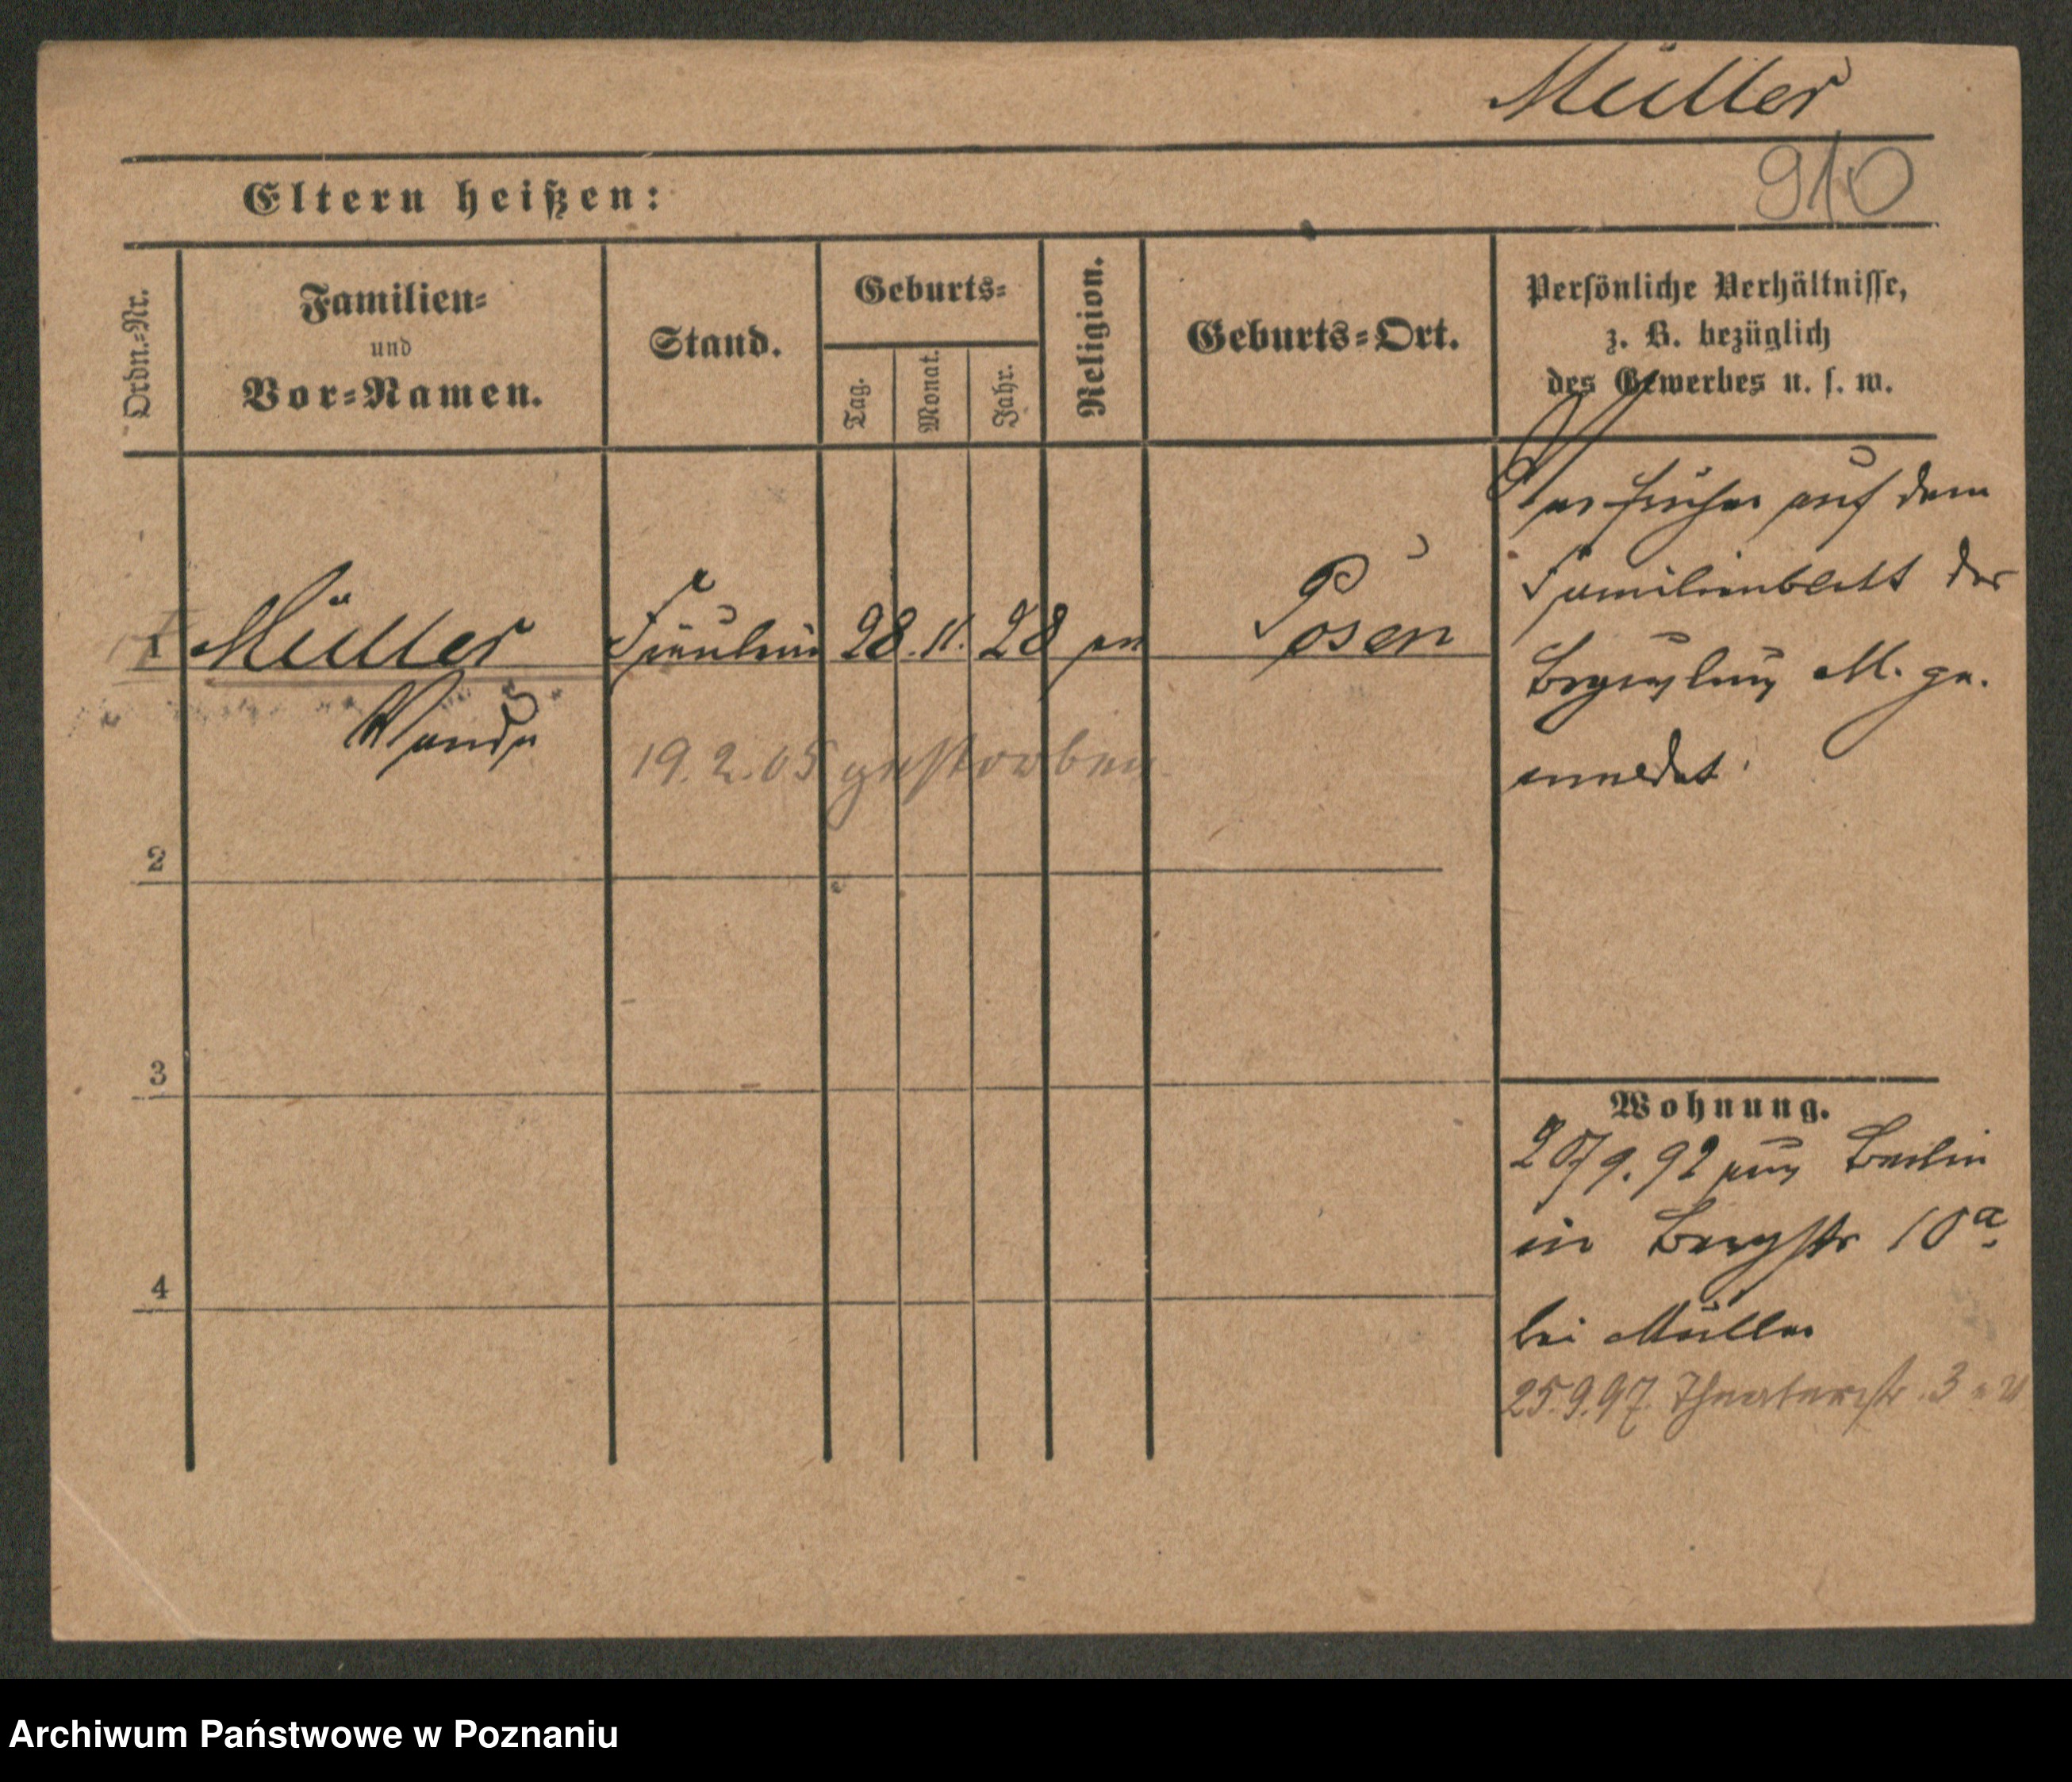 Müller
910
Eltern heißen:
Ordn.-Nr.
Familien-
und
Vor-Namen.
Stand.
Geburts-
Tag.
Monat.
Jahr.
Religion.
Geburts-Ort.
Persönliche Verhältnisse,
z. B. bezüglich
des Gewerbes u. s. w.
1 Müller Fräulein 28. 11. 28 ev Posen
Wanda
19.2.05 gestorben
War früher auf dem
Familienblatt der
M. ge-
meldet.
2
3
4
Wohnung.
20/9.92 aus Berlin
in Bergstr 10a
bei Müller
25.9.97. Theaterstr. 3
Archiwum Państwowe w Poznaniu